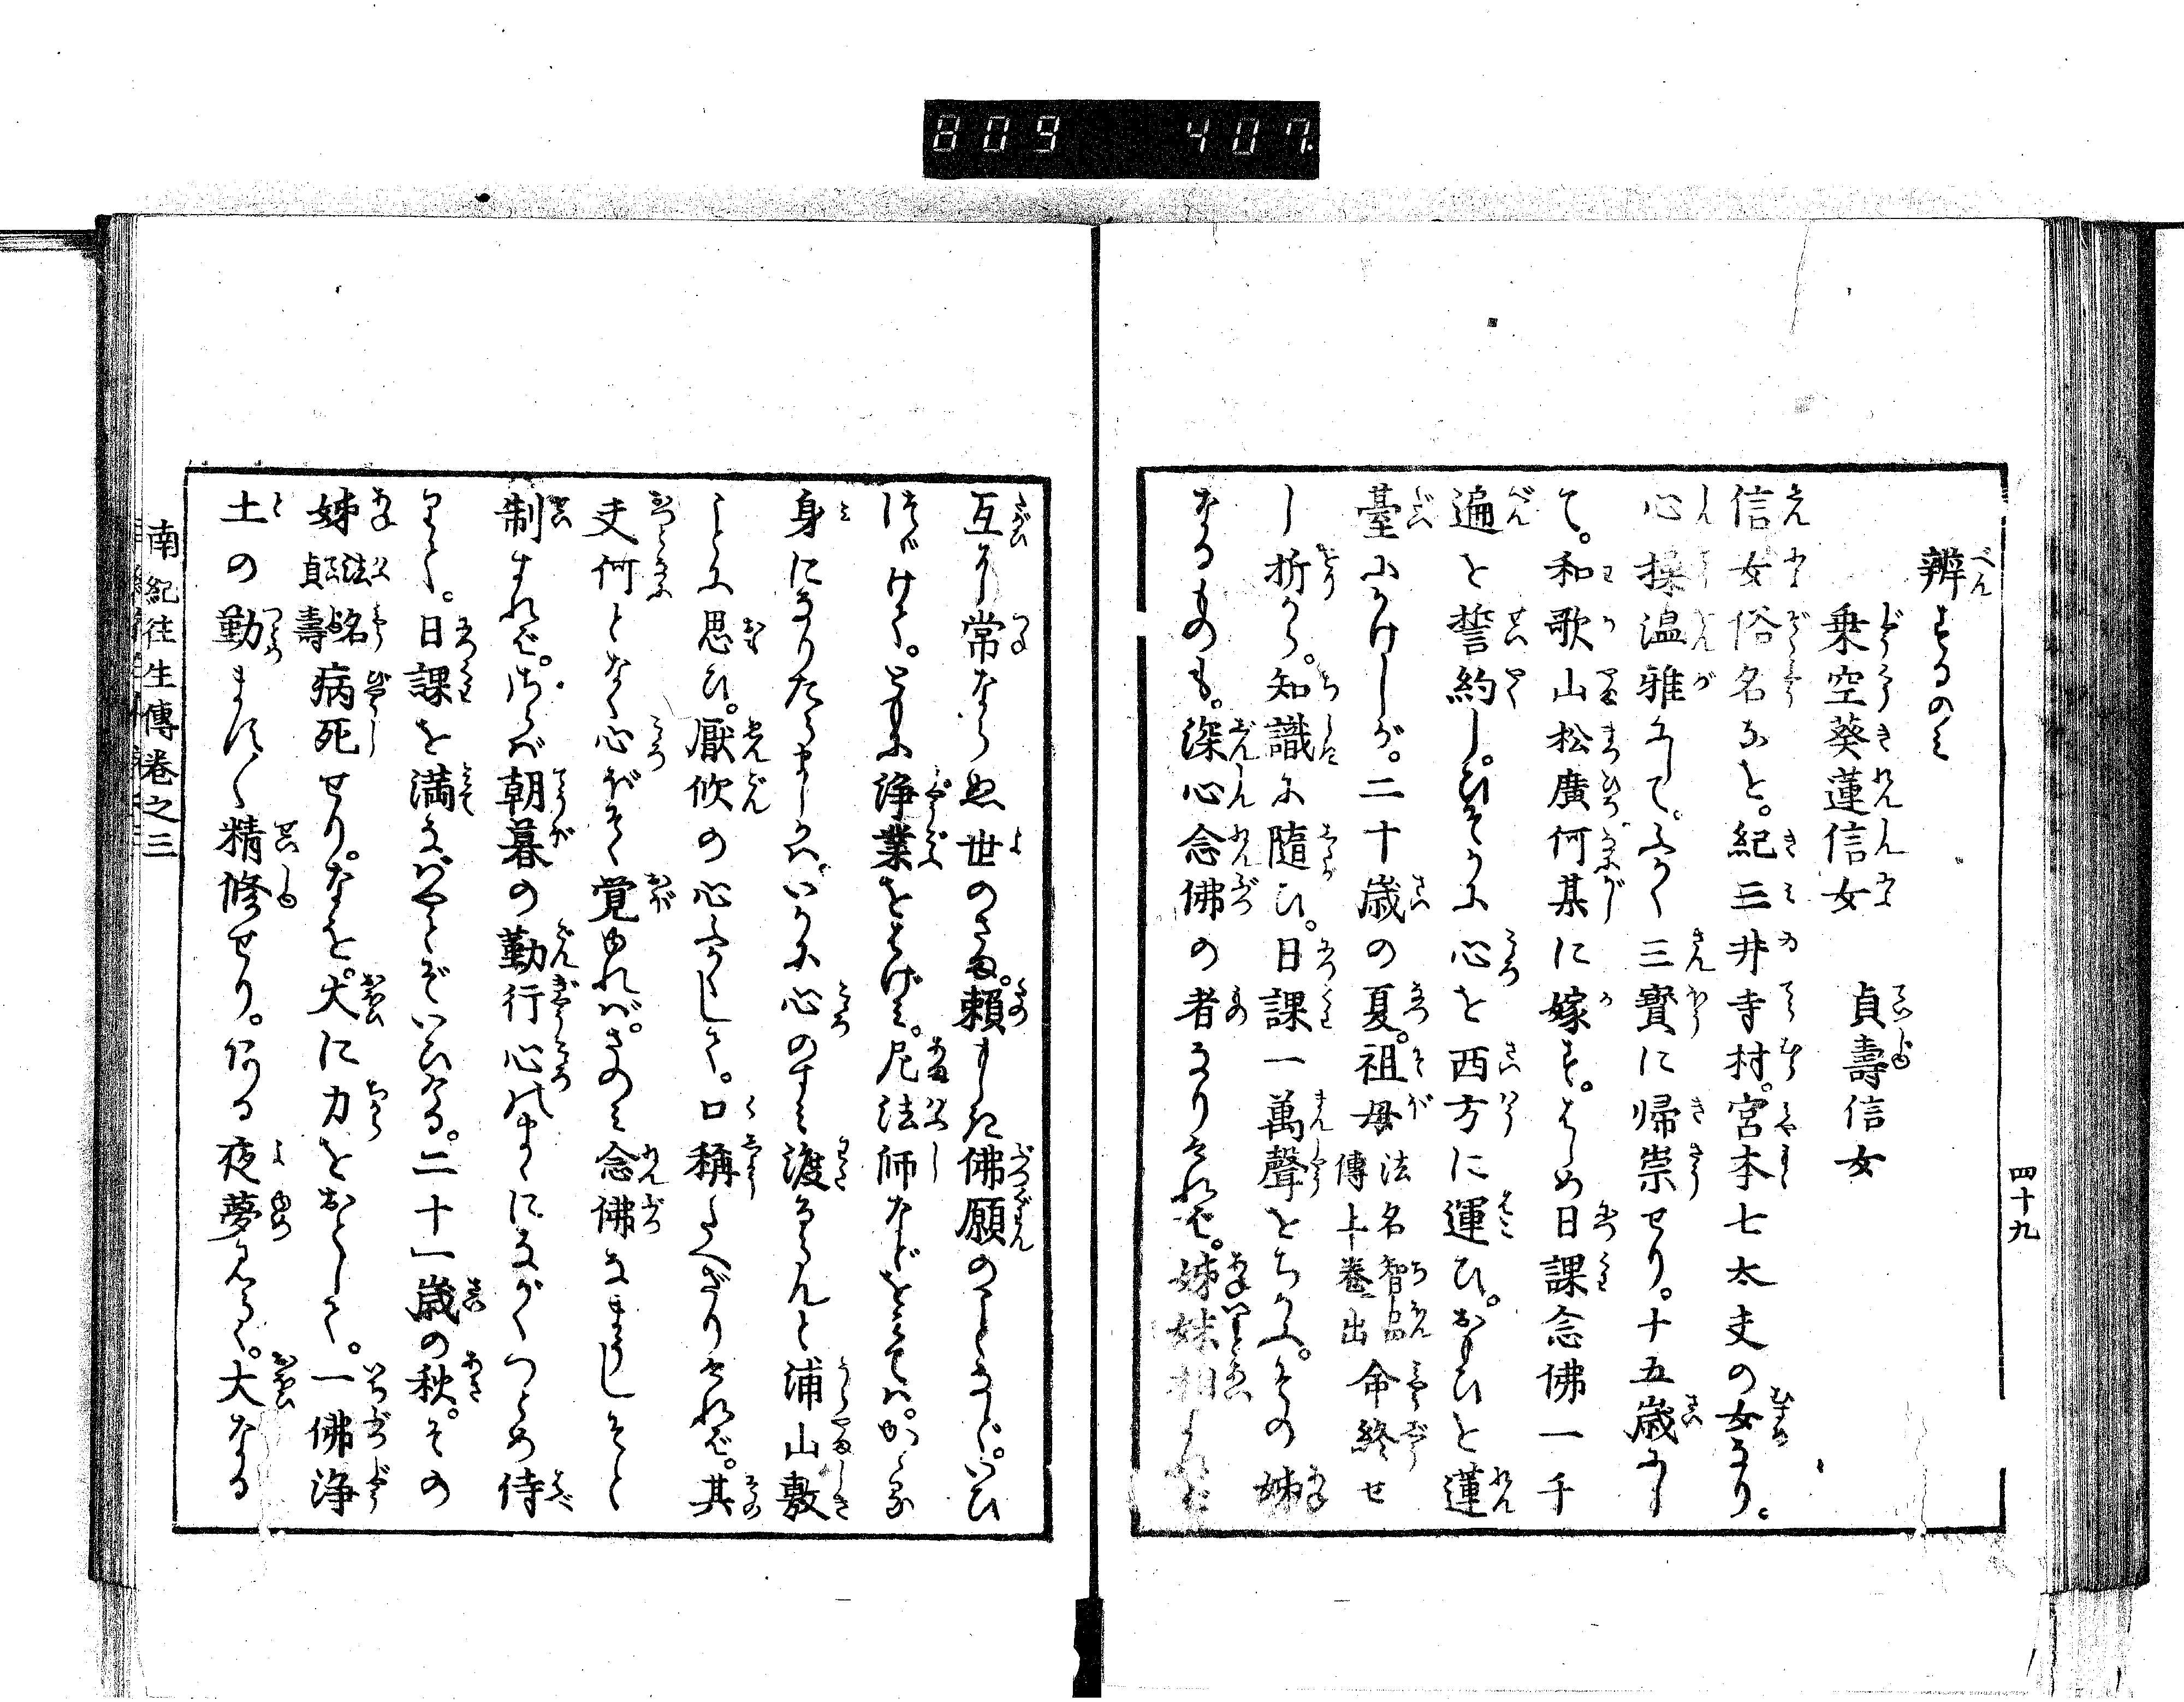 809 407
四十九
辨するのミ
乗空葵蓮信女 貞壽信女
信女俗名なを。紀三井寺村。宮本七太夫の女なり。
心操温雅にして。ふかく三寳に帰崇せり。十五歳にし
て。和歌山松廣何某に嫁す。はしめ日課念佛一千
遍を誓約し。ひそかに心を西方に運ひ。おもひを蓮
臺にかけしが。二十歳の夏。祖母法名智 傳上巻出命終せ
し折から。知識に随ひ。日課一萬聲をちかふ。その姊
なるものも。深心念佛の者なりけれバ。姊妹相
互に常ならぬ世のさま。頼もしき佛願のことなど。いひ
つゞけて。ともに浄業をはげミ。尼法師などを見てハ。かゝる
身になりたらましかバ。いかに心のすミ渡るらんと浦山敷
ことに思ひ。厭欣の心ふかくして。口稱たへざりけれバ。其
夫何となく心ぼそく覚ゆれバ。さのミ念佛なまうしそと
制すれバ。さらバ朝暮の勤行心のまゝにながくつとめ侍
りて。日課を満なバやとぞいひける。二十一歳の秋。その
姊法名貞壽病死せり。なを。大に力をおとして。一佛浄
土の勤ます〳〵精修せり。ある夜夢みらく。大なる
南紀往生傳巻之三